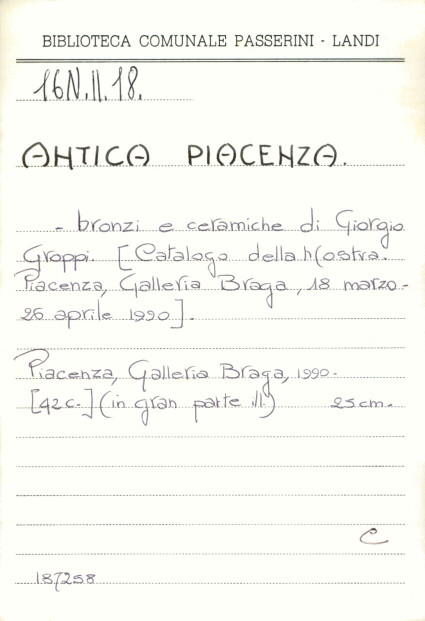 BIBLIOTECA COMUNALE PASSERINI - LANDI
16N.II.18.
ANTICA PIACENZA.
- bronzi e ceramiche di Giorgio
Groppi. [Catalogo della Mostra.
Piacenza, Galleria Braga, 18 marzo-
26 aprile 1990].
Piacenza, Galleria Braga, 1990.
[42 c.] (in gran parte ill.) 25 cm.
C
187258